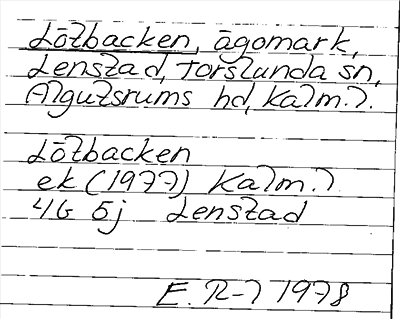 Lötbacken, ägomark,
Lenstad, Torslunda sn,
Algutsrums hd, Kalm. l.
Lötbacken
ek (1977) Kalm. l
4G 5j Lenstad
E. R-l 1978